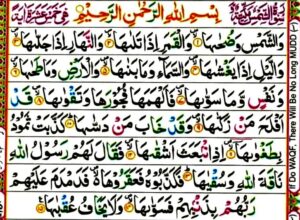 سورة الشمس مكية بسم الله الرحمن الرحيم وهي خمس عشرة آية
والشمس وضحىها والقمر إذا تلىها والنهار إذا جلىها
واليل إذا يغشىها والسماء وما بنىها والأرض وما طحىها
ونفس وما سوىها فألهمها فجورها وتقوىها قد
أفلح من زكىها وقد خاب من دسىها كذبت ثمود
بطغوىها إذ انبعث أشقىها فقال لهم رسول الله
ناقة الله وسقيها فكذبوه فعقروها فدمدم عليهم
ربهم بذنبهم فسوىها ولا يخاف عقبها
If Do WAQF. There Will Be No Long MUDD (~)